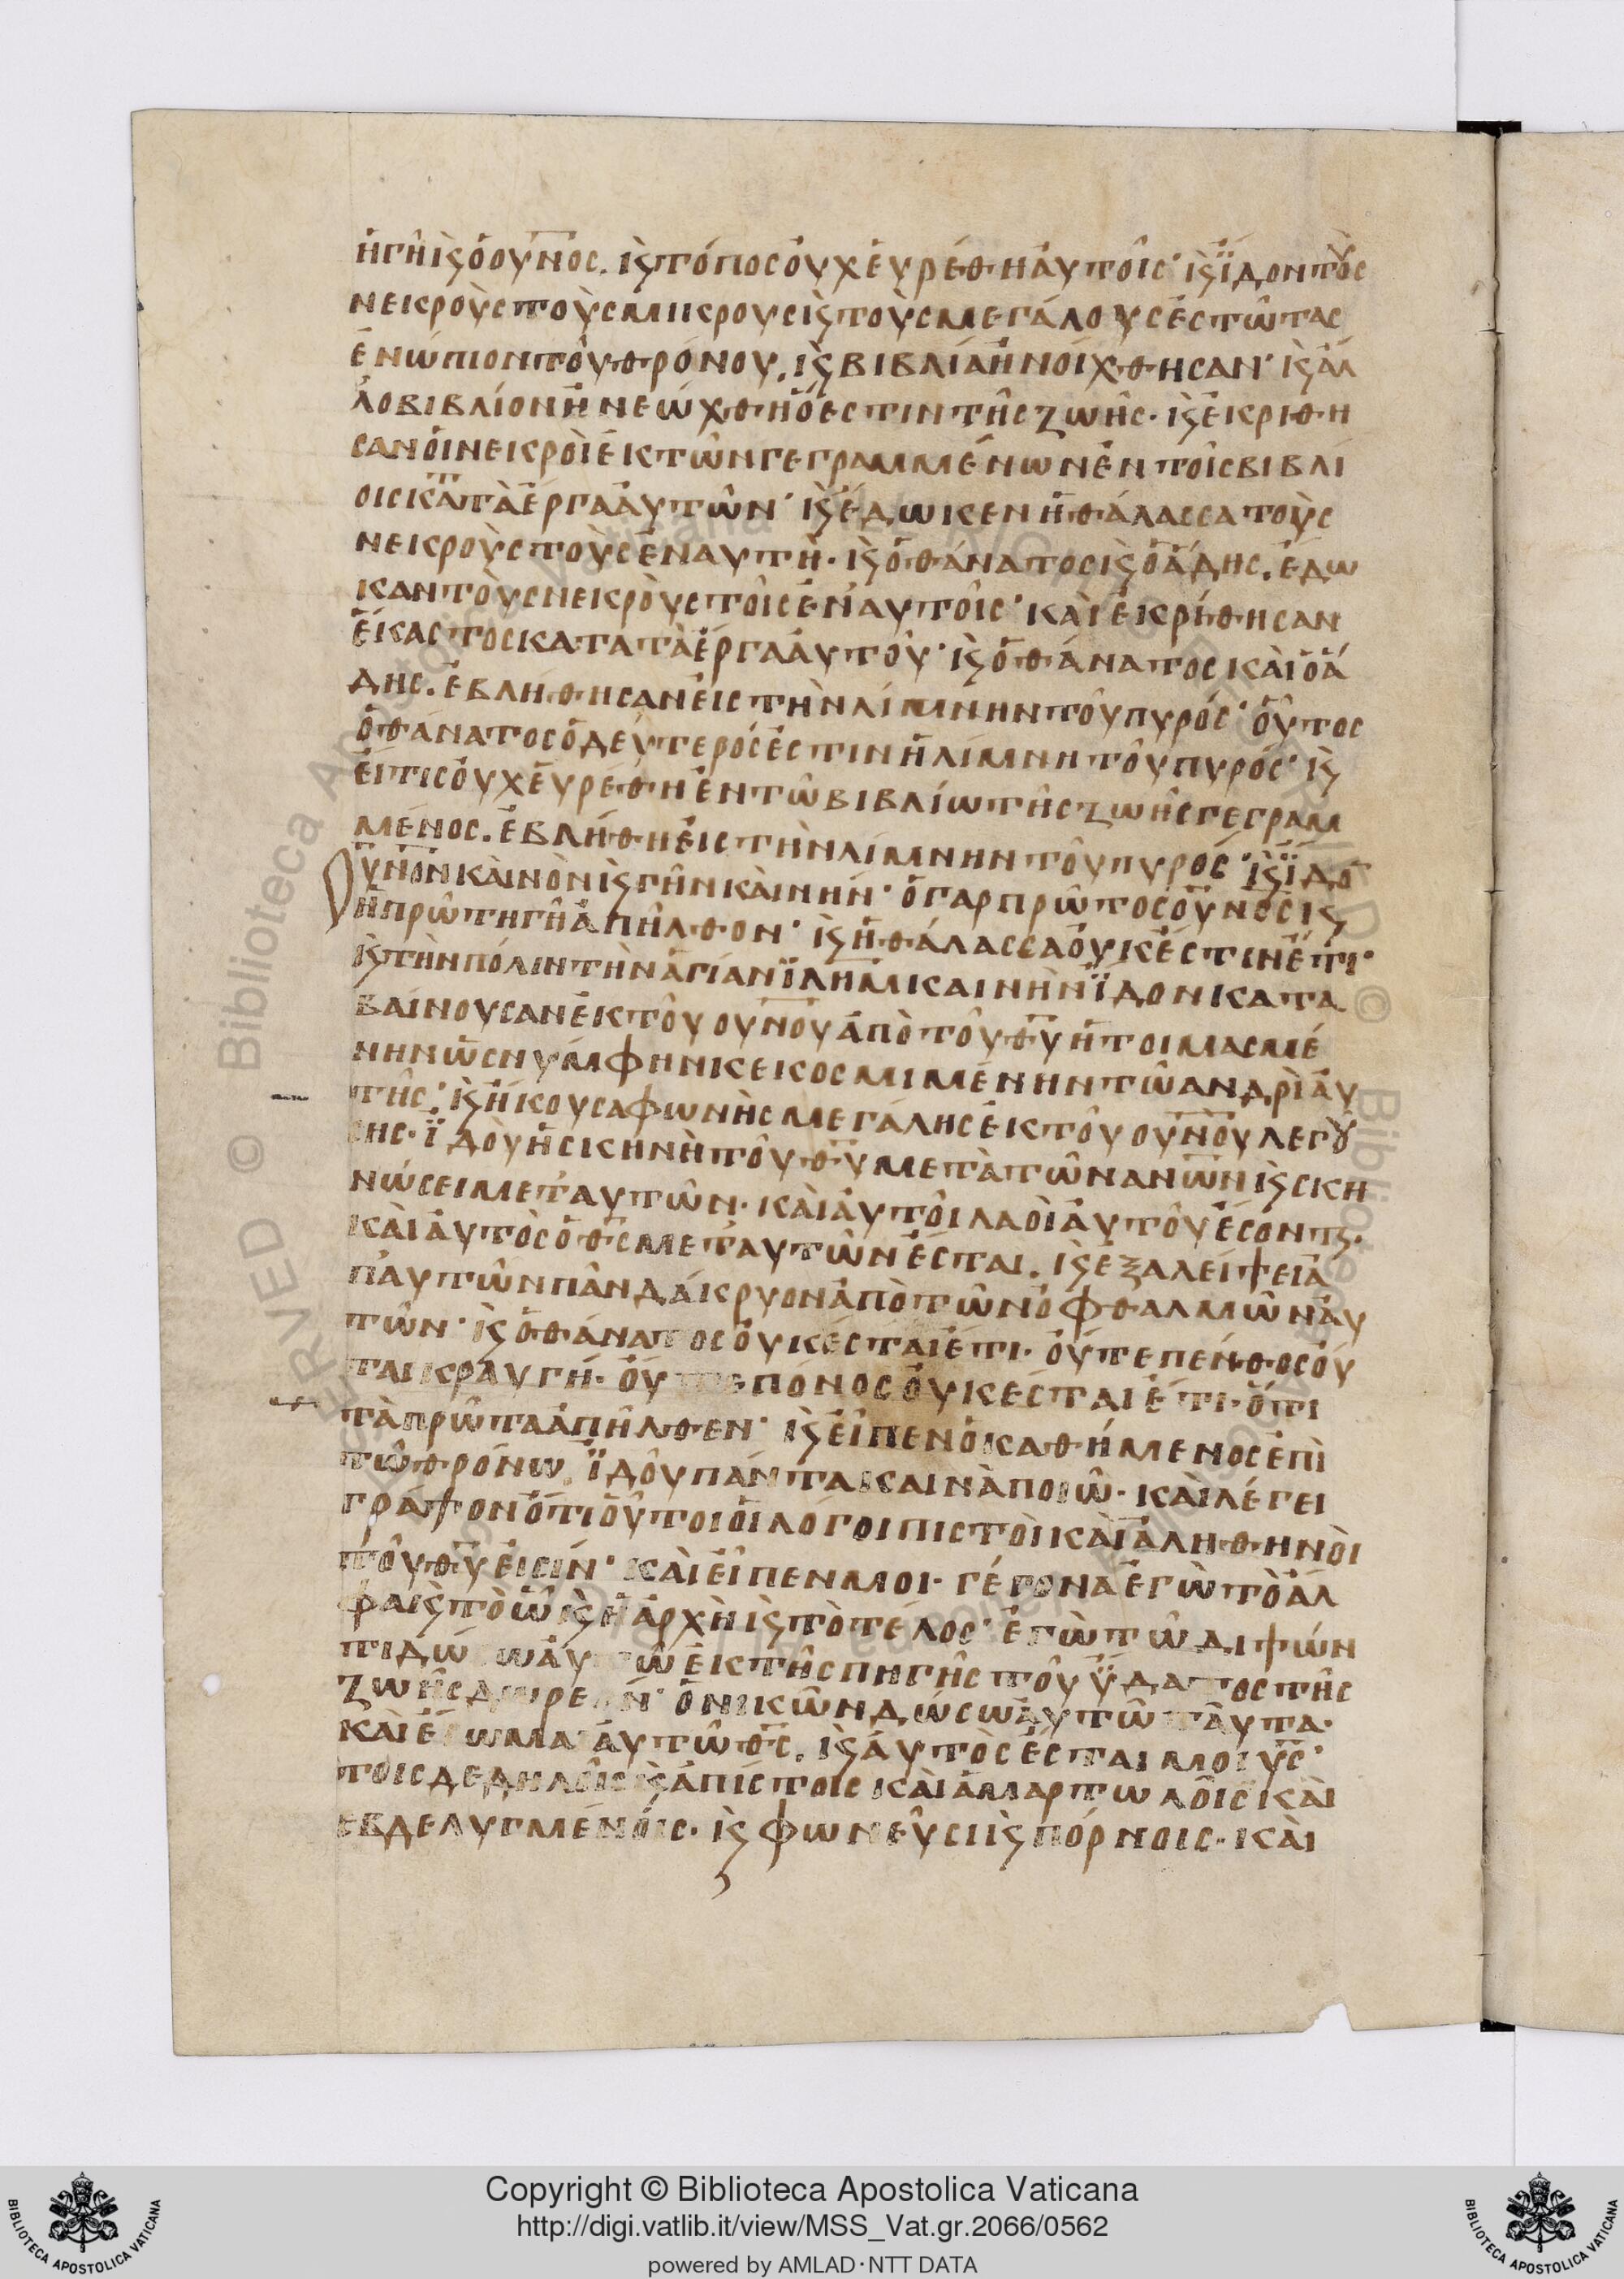 ἡ γῆ ϗ ὁ οὐνος. ϗ τόπος οὐχ εὑρέθη αὐτοῖς· ϗ ἴδον τοὺς
νεκροὺς τοὺς μικρους ϗ τοὺς μεγάλους ἑστῶτας
ἐνώπιον τοῦ θρόνου. ϗ βιβλία ἠνοίχθησαν· ϗ ἀλ
λο βιβλίον ἠνεώχθη ὅ ἐστιν τῆς ζωῆς· ϗ ἐκριθη
σαν οἱ νεκροὶ ἐκ τῶν γεγραμμένων ἐν τοῖς βιβλί
οις κατὰ ἔργα αὐτῶν· ϗ ἔδωκεν ἡ θάλασσα τοὺς
νεκροὺς τοὺς ἐν αυτῆ· ϗ ὁ θάνατος ϗ ὁ ἅδης. ἔδω
καν τοὺς νεκροὺς τοῖς ἐν αυτοῖς· καὶ ἐκρίθησαν
ἕκαστος κατα τὰ ἔργα αὐτοῦ· ϗ ὁ θάνατος καὶ ὁ ἅ
δης. ἐβλήθησαν εἰς τὴν λίμνην τοῦ πυρός· οὗτος
ὁ θάνατος ὁ δεύτερός ἐστιν ἡ λίμνη τοῦ πυρός· ϗ
εἴ τις οὐχ εὑρέθη ἐν τῶ βιβλίω τῆς ζωῆς γεγραμ
μένος. ἐβλήθη εἰς τὴν λίμνην τοῦ πυρός· ϗ ἴδο
οὐνὸν καινὸν ϗ γῆν καινήν· ὁ γαρ πρῶτος οὐνος ϗ
ἡ πρώτη γῆ ἀπῆλθον· ϗ ἡ θάλασσα οὐκ ἔστιν ἔτι·
ϗ τὴν πόλιν τὴν ἁγίαν ϊλημ καινὴν ἴδον κατα
βαίνουσαν ἐκ τοῦ οὐνου ἀπὸ τοῦ θυ ἡτοιμασμέ
νην ὡς νύμφην κεκοσμιμένην τῶ ανδρὶ αὐ
τῆς· ϗ ἤκουσα φωνῆς μεγάλης ἐκ τοῦ οὐνοῦ λεγȣ
σης· ἰδοὺ ἡ σκηνὴ τοῦ θυ μετὰ τῶν ανων ϗ σκη
νώσει μετ αυτῶν· καὶ αὐτοὶ λαοὶ αὐτοῦ ἔσονται·
καὶ αὐτὸς ὁ θς μετ αυτῶν ἔσται. ϗ ἐξαλείψει ἀ
π αυτῶν πᾶν δάκρυον ἀπὸ τῶν ὀφθαλμῶν αὐ
τῶν· ϗ ὁ θάνατος οὐκ ἔσται ἔτι· οὔτε πένθος οὔ
ται κραυγή· οὔτε πόνος οὐκ ἔσται ἔτι· ὅτι
τὰ πρῶτα ἀπῆλθεν· ϗ εἶπεν ὁ καθήμενος ἐπὶ
τῶ θρόνω, ἰδοὺ πάντα καινὰ ποιῶ· καὶ λέγει
γράψον ὅτι οὗτοι οἱ λόγοι πιστοὶ καὶ ἀληθηνοὶ
τοῦ θυ εἰσίν· καὶ εἶπεν μοι· γέγονα ἐγὼ τὸ ἄλ
φα ϗ τὸ ὦ ϗ ἡ ἀρχὴ ϗ τὸ τέλος· ἐγὼ τῶ διψών
τι δώσω αὐτῶ ἐκ τῆς πηγῆς τοῦ ὕδατος τῆς
ζωῆς δωρεάν· ὁ νικῶν δώσω αὐτῶ ταῦτα·
καὶ ἔσωμαι αὐτῶ θς. ϗ αὐτὸς ἔσται μοι υς·
τοις δε δηλοῖς ϗ ἀπίστοις καὶ ἁμαρτωλοῖς καὶ
εβδελυγμένοις· ϗ φωνεῦσι ϗ πόρνοις· καὶ
Copyright © Biblioteca Apostolica Vaticana
http://digi.vatlib.it/view/MSS_Vat.gr.2066/0562
powered by AMLAD·NTT DATA
BIBLIOTECA APOSTOLICA VATICANA
BIBLIOTECA APOSTOLICA VATICANA